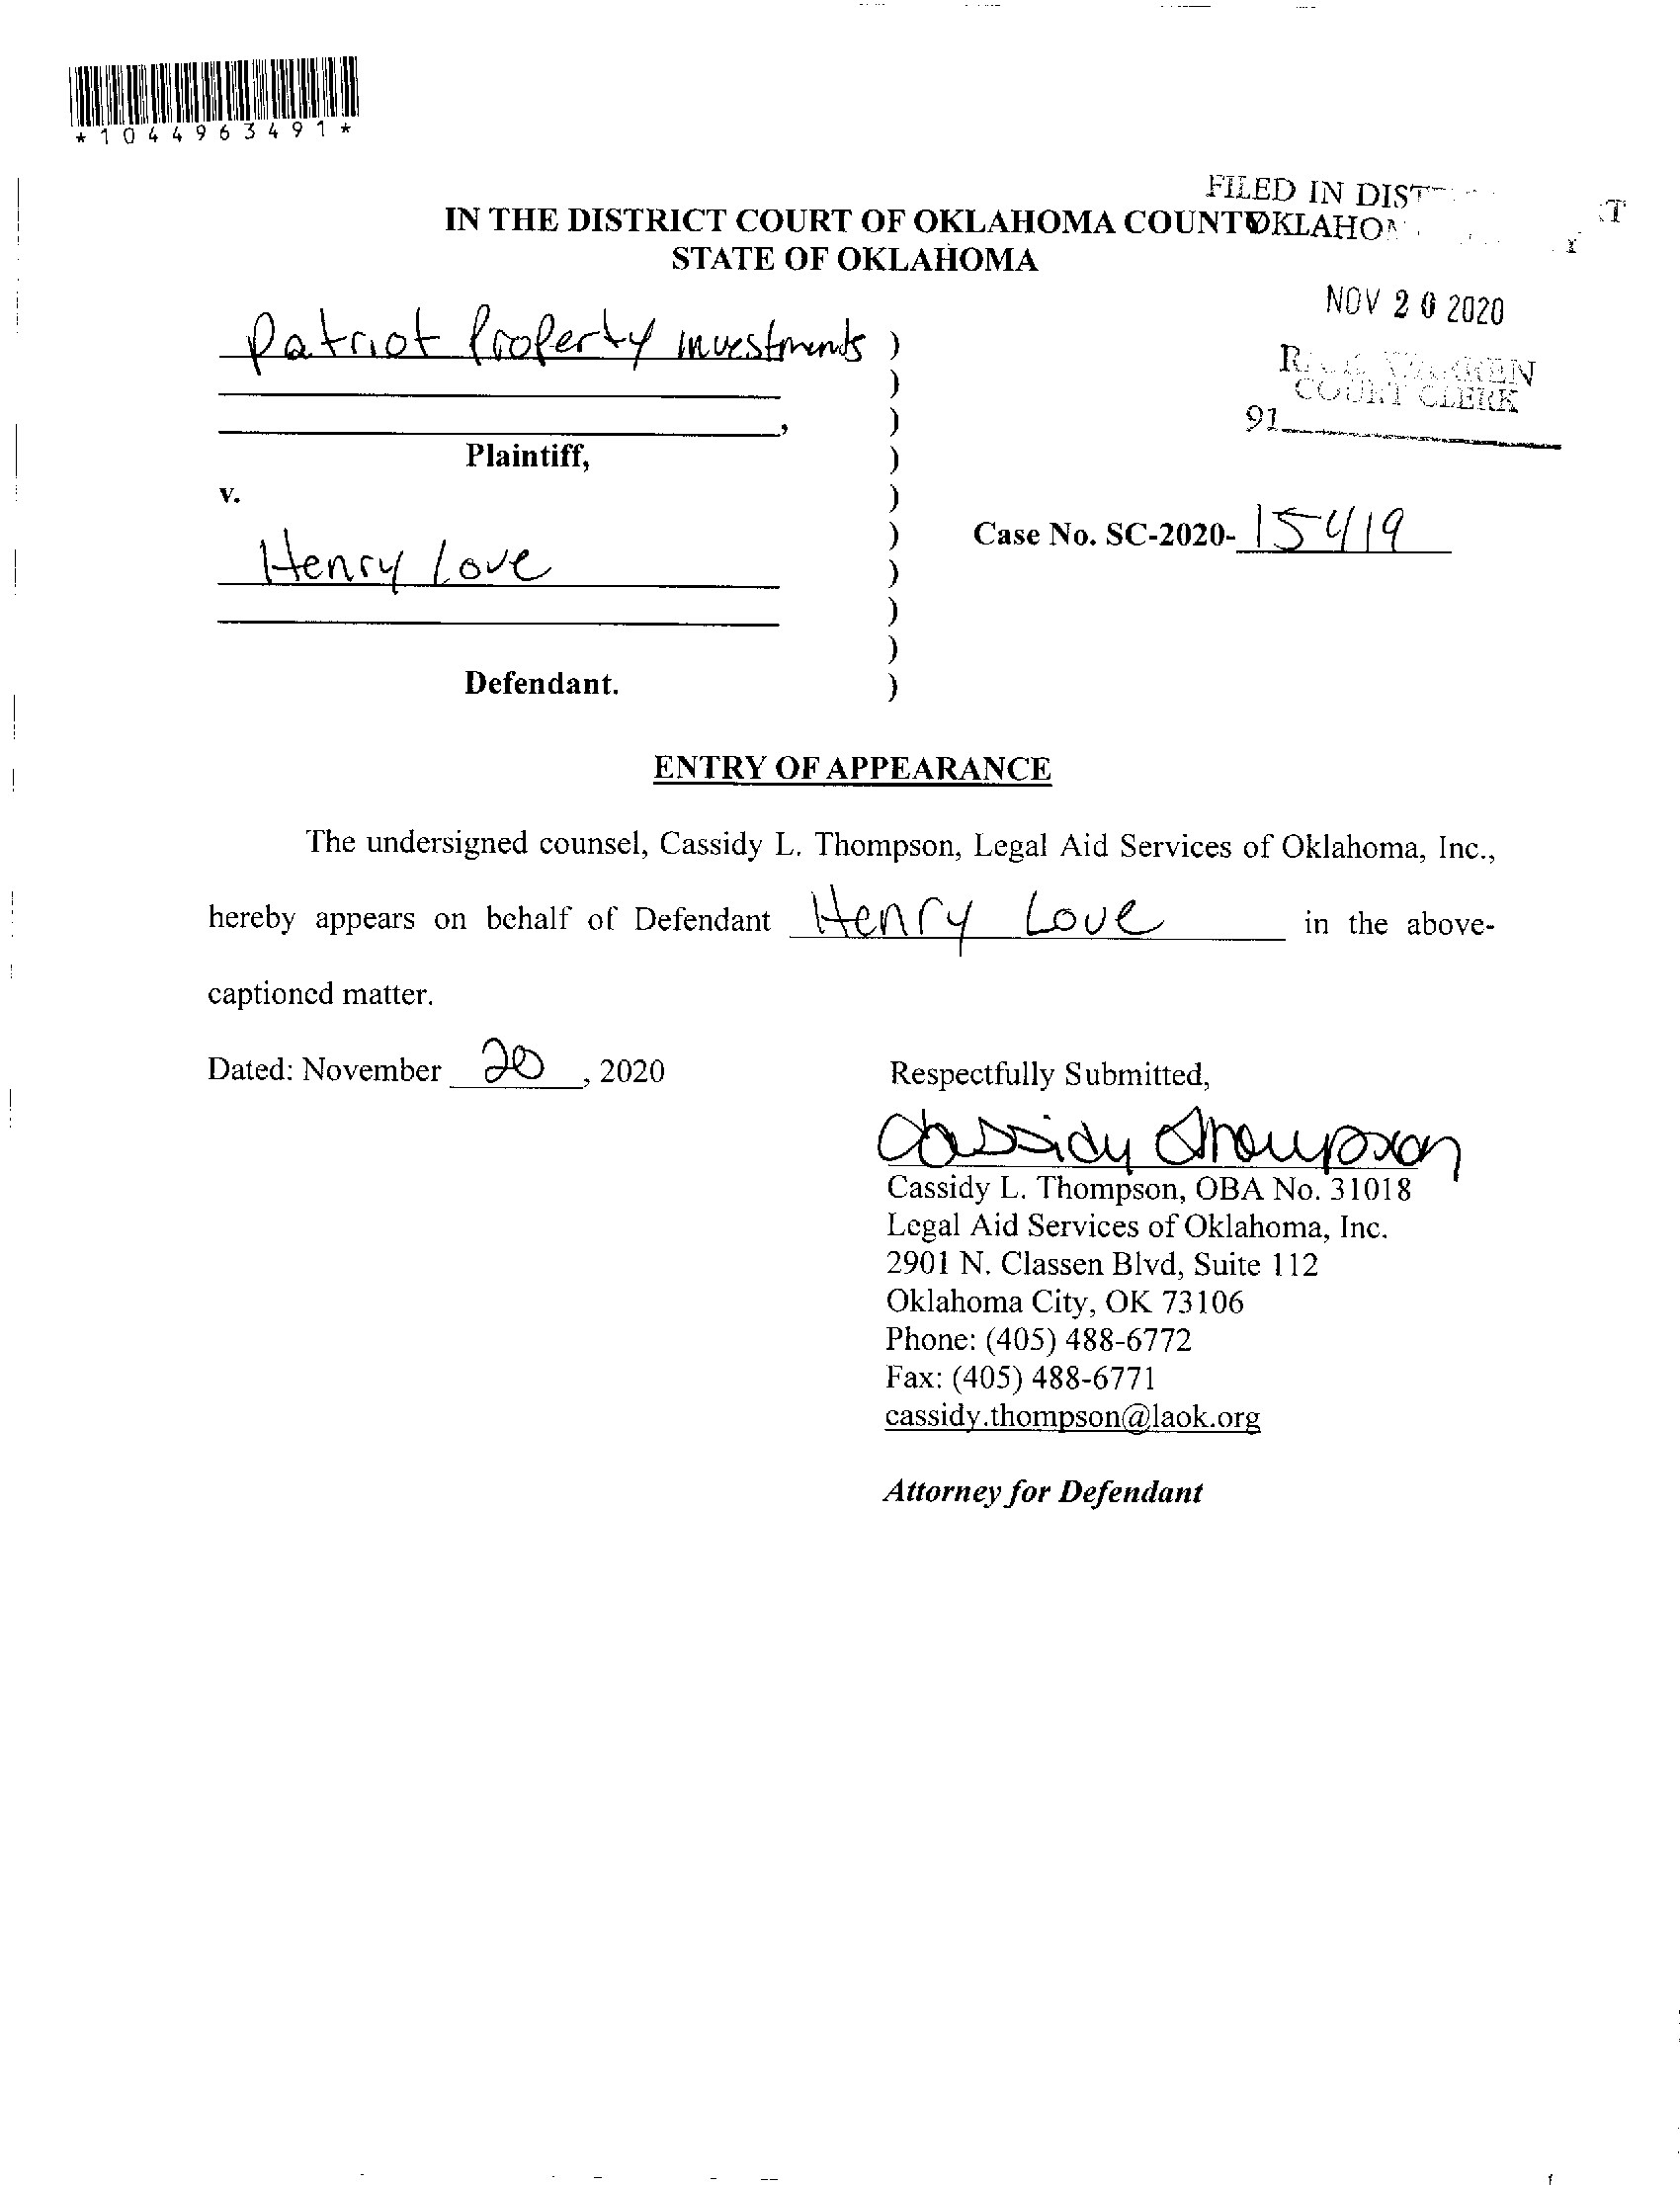 *1044963491*
FILED IN DIST
IN THE DISTRICT COURT OF OKLAHOMA COUNTY
OKLAHO
STATE OF OKLAHOMA
NOV 20 2020
Patriot Property investments )
)
WARREN
COURT CLERK
, )
91
Plaintiff, )
v. )
Case No. SC-2020- 15419
)
Henry Love )
)
)
Defendant. )
ENTRY OF APPEARANCE
The undersigned counsel, Cassidy L. Thompson, Legal Aid Services of Oklahoma, Inc.,
hereby appears on behalf of Defendant Henry Love in the above-
captioned matter.
Dated: November 20, 2020
Respectfully Submitted,
Cassidy Thompson
Cassidy L. Thompson, OBA No. 31018
Legal Aid Services of Oklahoma, Inc.
2901 N. Classen Blvd, Suite 112
Oklahoma City, OK 73106
Phone: (405) 488-6772
Fax: (405) 488-6771
cassidy.thompson@laok.org
Attorney for Defendant